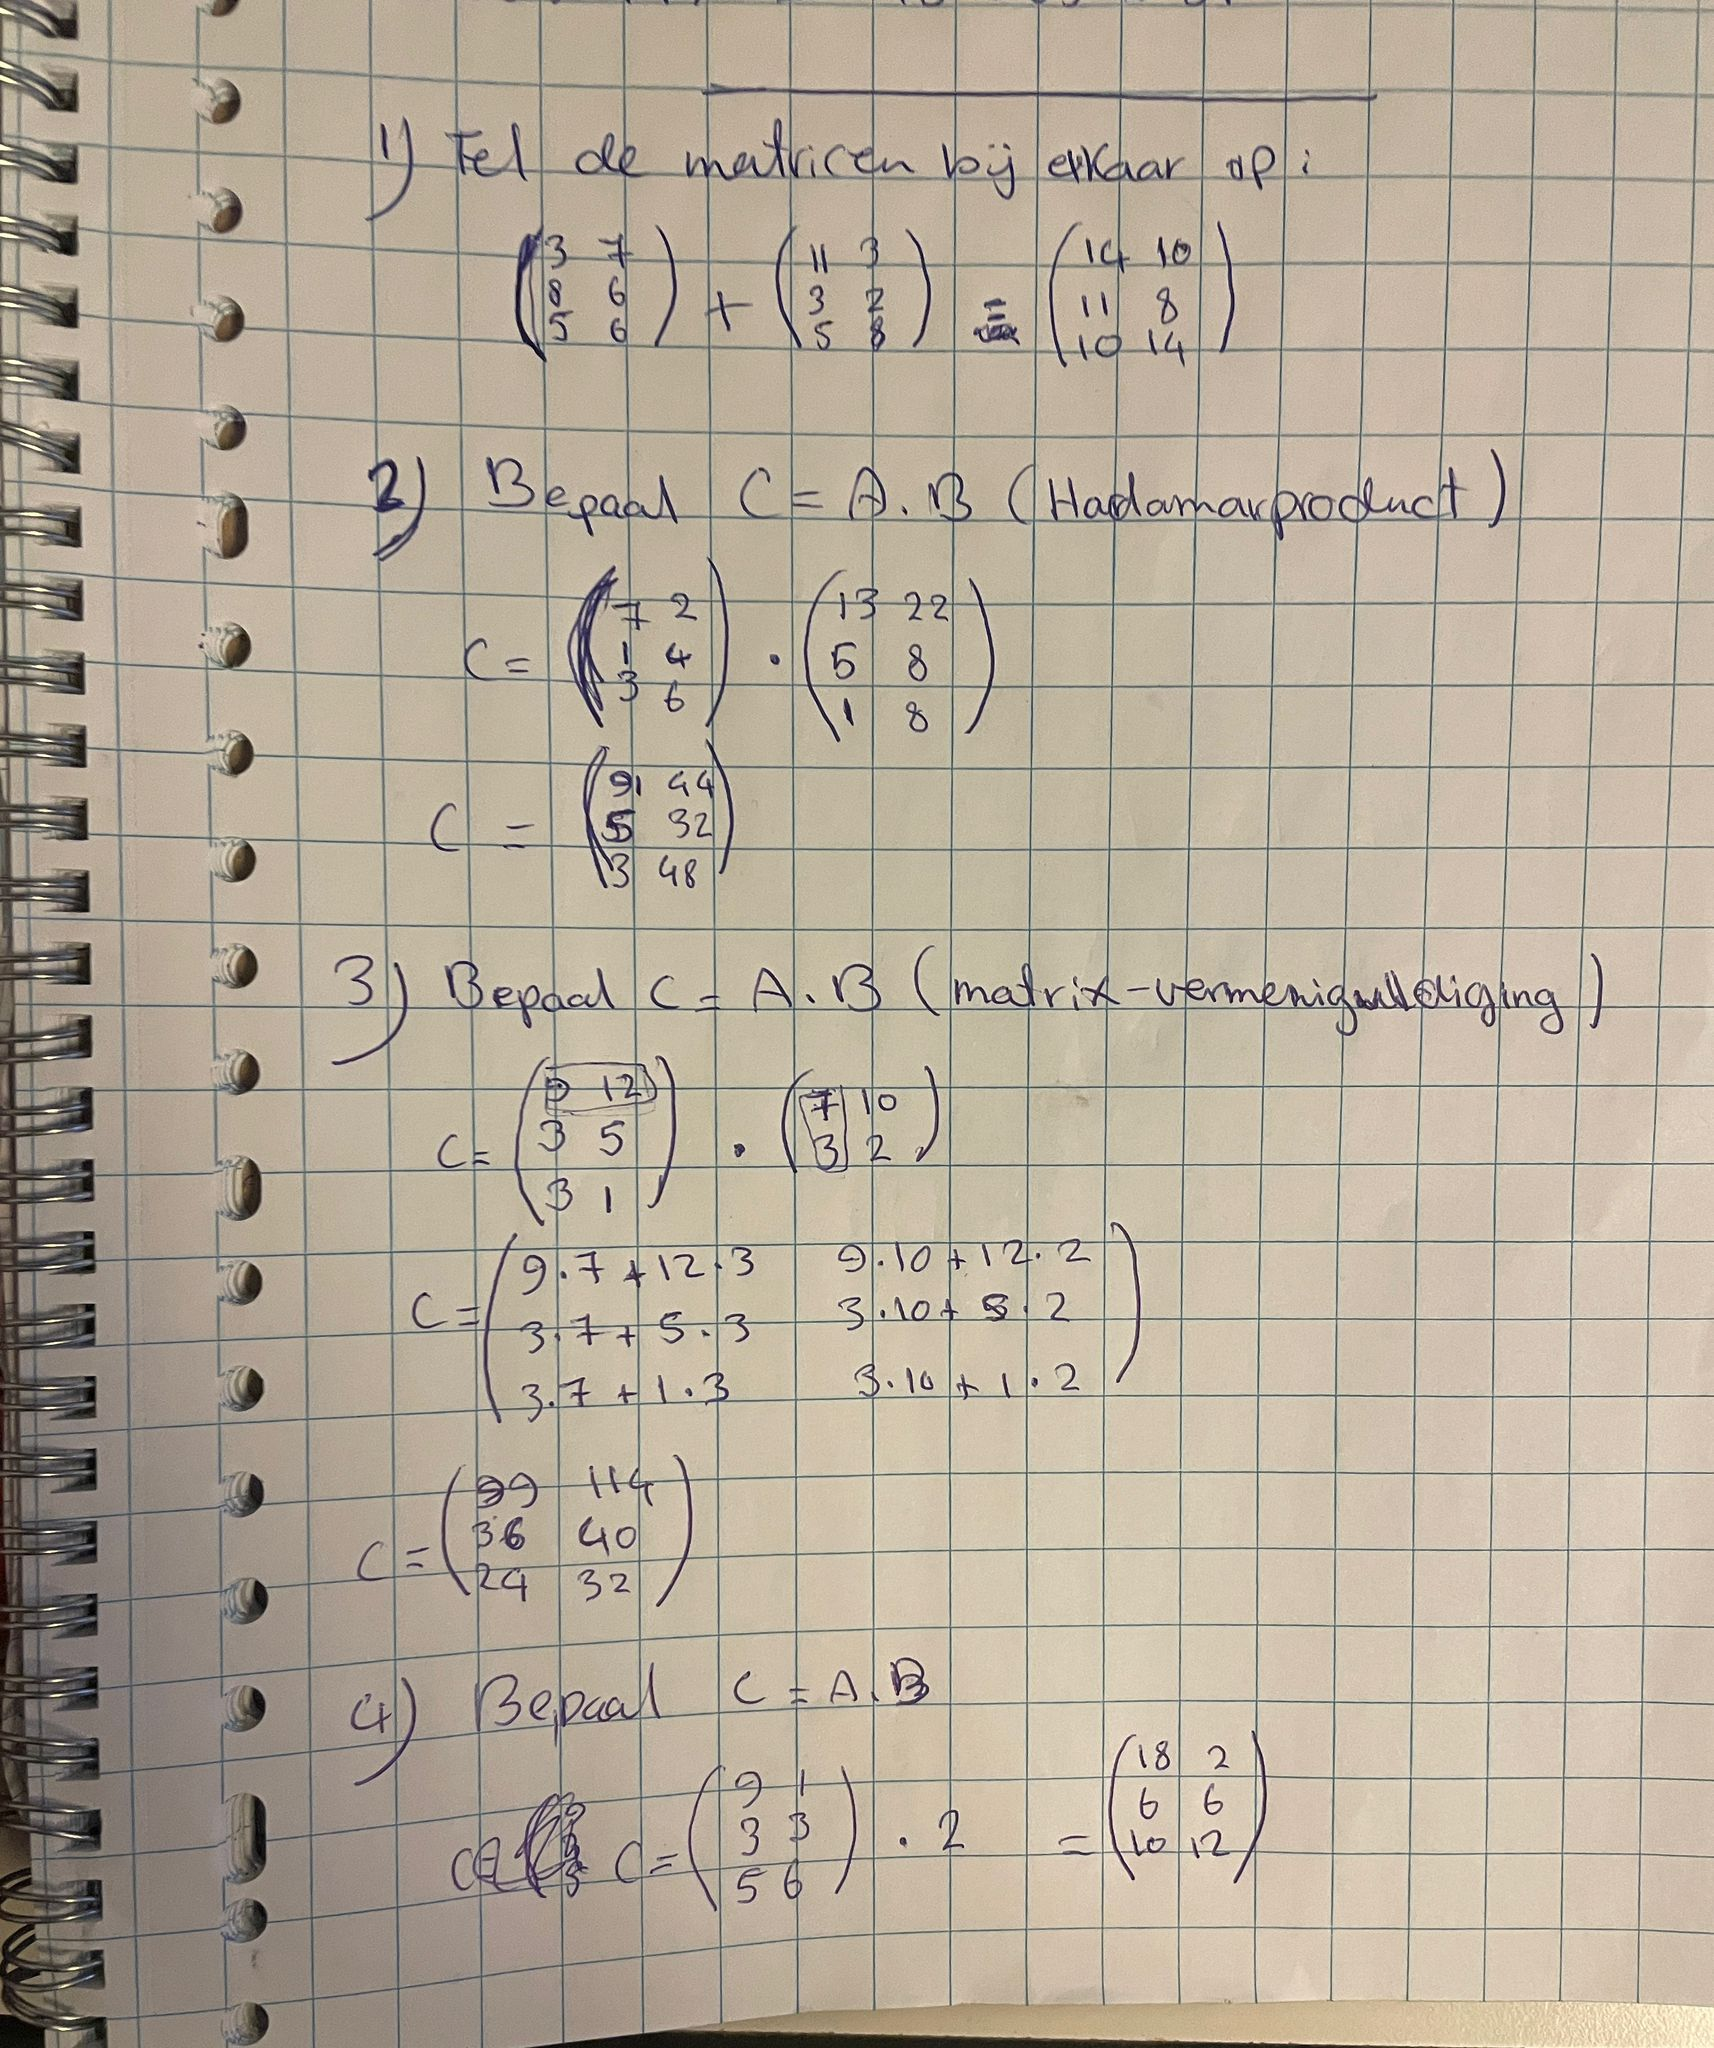 1) Tel de matricen bij elkaar op:
(3 7
8 6
5 6) + (11 3
3 2
5 8) = (14 10
11 8
10 14)
2) Bepaal C = A.B (Hadamarproduct)
C = (7 2
1 4
3 6) · (13 22
5 8
1 8)
C = (91 44
5 32
3 48)
3) Bepaal C = A.B (matrix-vermenigvuldiging)
C = (9 12
3 5
3 1) · (7 10
3 2)
C = (9·7+12·3 9·10+12·2
3·7+5·3 3·10+5·2
3·7+1·3 3·10+1·2)
C = (99 114
36 40
24 32)
4) Bepaal C = A.B
C = (9 1
3 3
5 6) · 2 = (18 2
6 6
10 12)